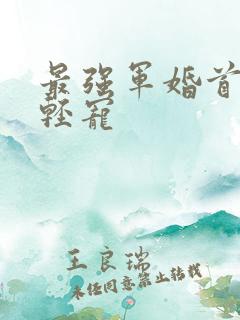 最强軍婚首
輕寵
王良瑞
未经同意禁止转载